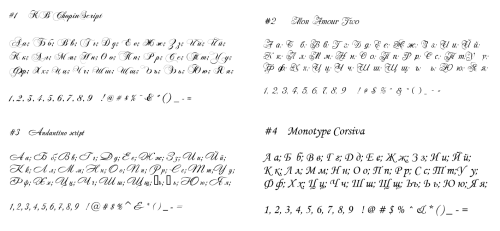 #1 K B Chopin Script
Аа; Бб; Вв; Гг; Дд; Ее; Жж; Зз; Ии; Йй;
Кк; Лл; Мм; Нн; Оо; Пп; Рр; Сс; Тт; Уу;
Фф; Хх; Цц; Чч; Шш; Щщ; Ъъ; Ьь; Юю; Яя;
1, 2, 3, 4, 5, 6, 7, 8, 9 !@#%^&*()_-=
#2 Mon Amour Two
Аа; Бб; Вв; Гг; Дд; Ее; Жж; Зз; Ии; Йй;
Кк; Лл; Мм; Нн; Оо; Пп; Рр; Сс; Тт; Уу;
Фф; Хх; Цц; Чч; Шш; Щщ; ъ; ь; Юю; Яя
1, 2, 3, 4, 5, 6, 7, 8, 9 !#$%^&*()_-=
#3 Andantino script
Аа; Бб; Вв; Гг; Дд; Ее; Жж; Зз; Ии; Йй;
Кк; Лл; Мм; Нн; Оо; Пп; Рр; Сс; Тт; Уу;
Фф; Хх; Цц; Чч; Шш; Щщ; Ьь; Юю; Яя;
1, 2, 3, 4, 5, 6, 7, 8, 9 !@#$%^&*()_-=
#4 Monotype Corsiva
Аа; Бб; Вв; Гг; Дд; Ее; Жж; Зз; Ии; Йй;
Кк; Лл; Мм; Нн; Оо; Пп; Рр; Сс; Тт; Уу;
Фф; Хх; Цц; Чч; Шш; Щщ; Ъъ; Ьь; Юю; Яя;
1, 2, 3, 4, 5, 6, 7, 8, 9 !@#$%^&*()_-=